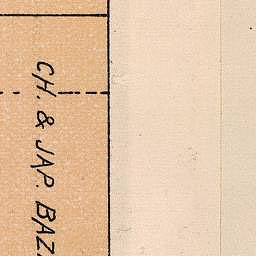 CH. & JAP. BAZ.